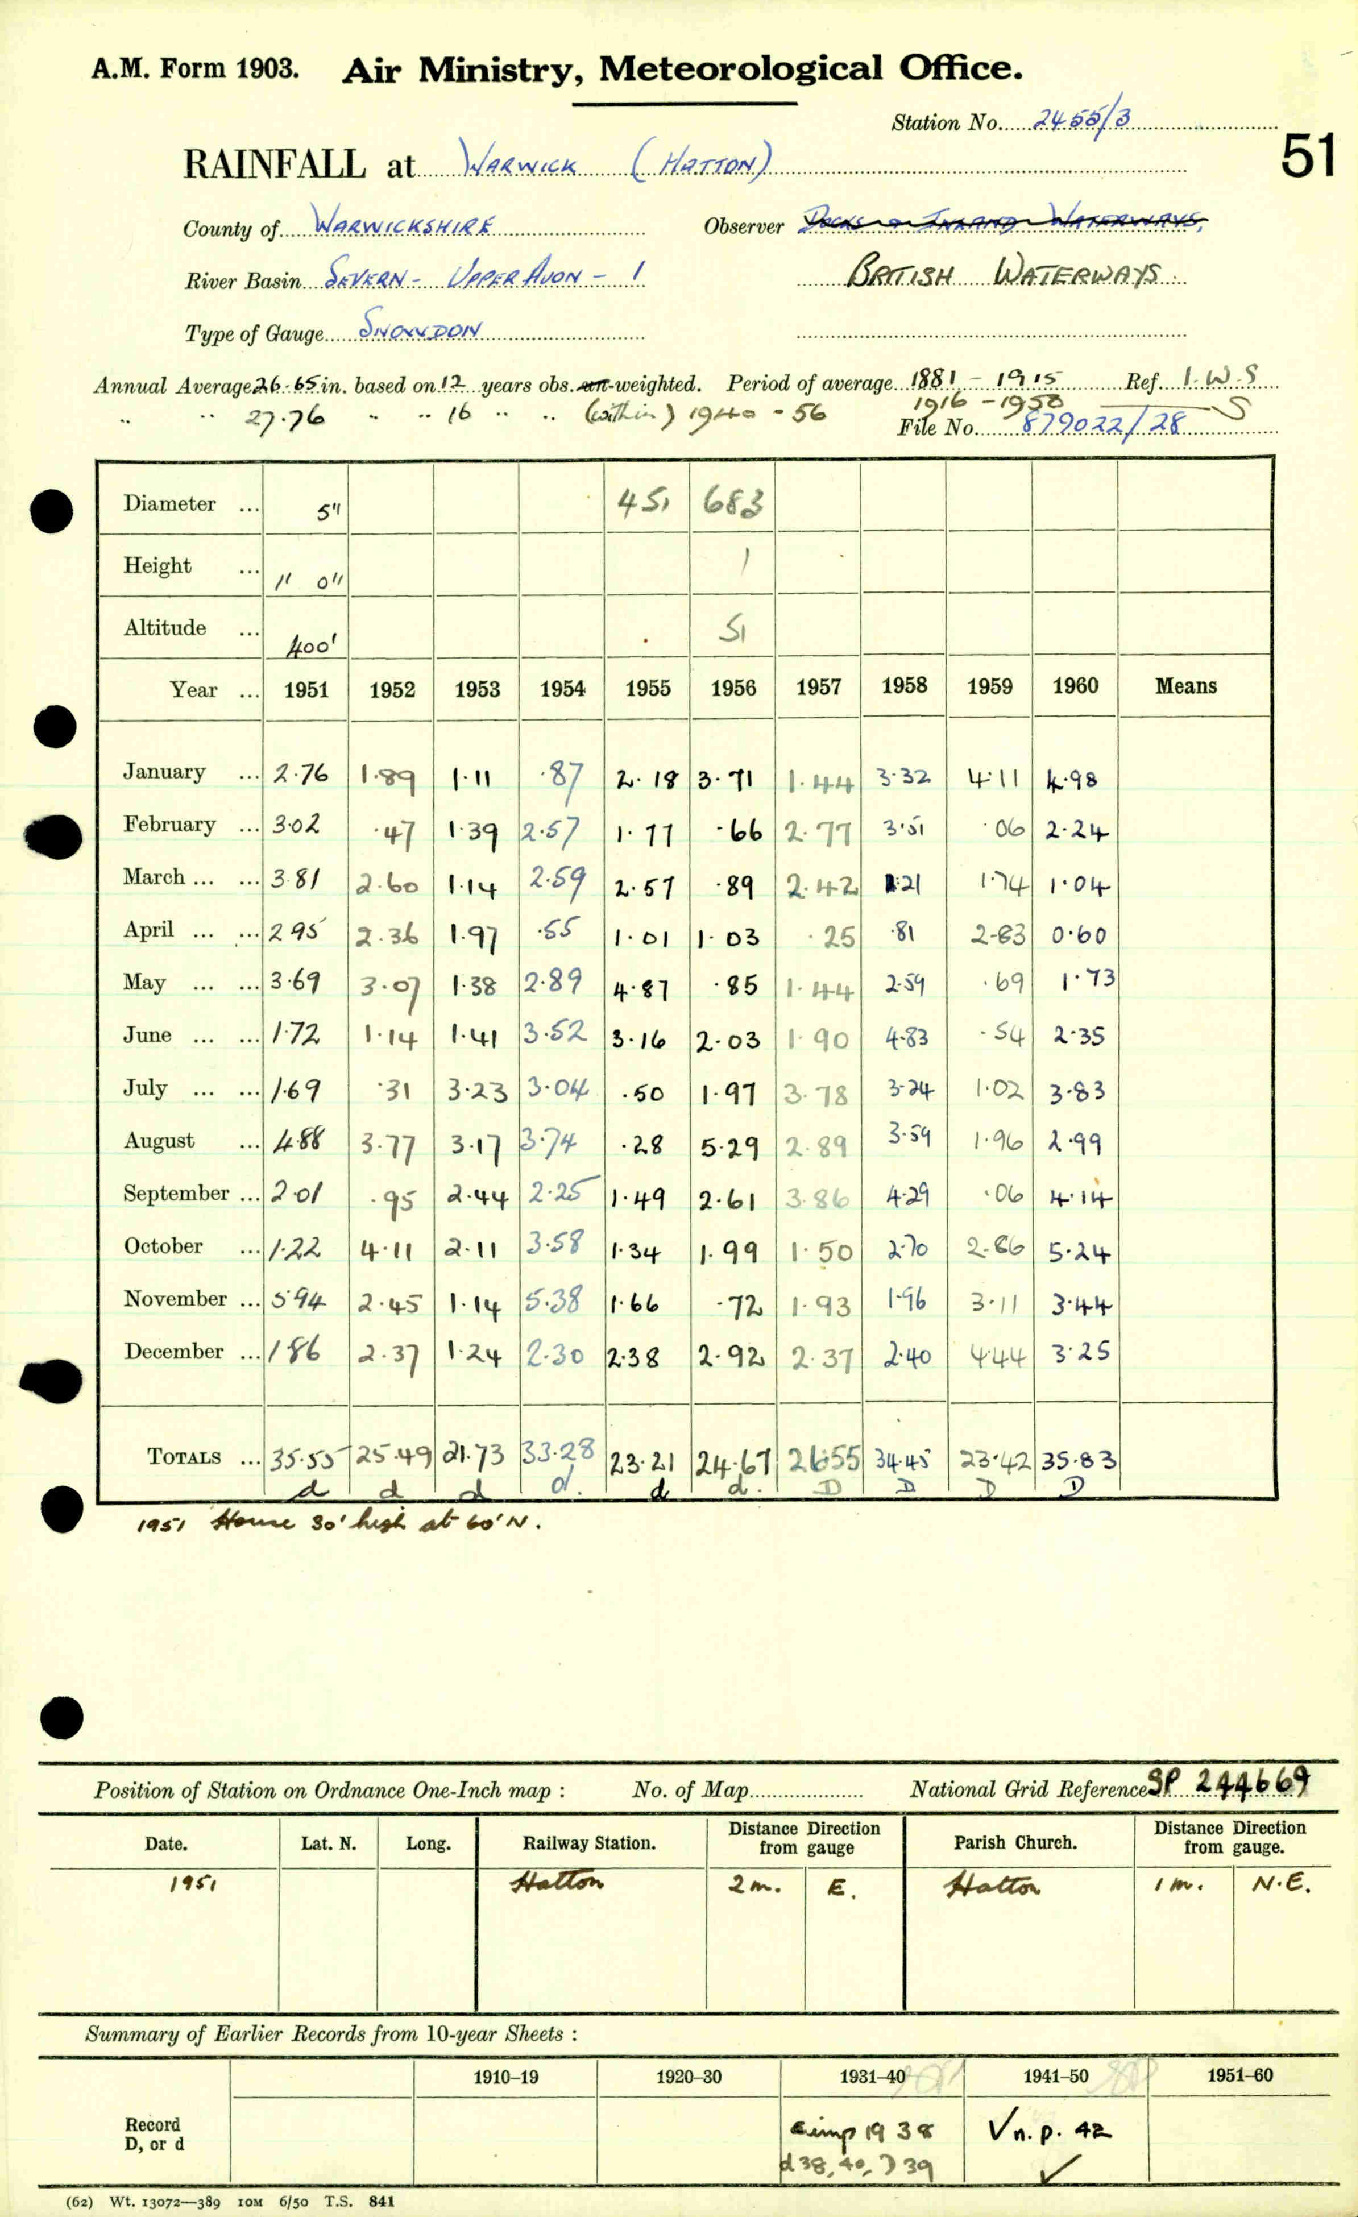 A.M. Form 1903. Air Ministry, Meteorological Office.
Station No. 2455/3
51
RAINFALL at WARWICK (HATTON)
County of WARWICKSHIRE Observer DOCKS & INLAND WATERWAYS.
River Basin SEVERN - UPPER AVON - 1 BRITISH WATERWAYS.
Type of Gauge SNOWDON
Annual Average 26.65 in. based on 12 years obs. un-weighted. Period of average 1881 - 1915 Ref. I.W.S
" " 27.76 " " 16 " " (within) 1940 - 56 1916 - 1950 S
File No. 879022/28
Diameter ... 5" 451 683
Height ... 1' 0" 1
Altitude ... 400' 51
Year ... 1951 1952 1953 1954 1955 1956 1957 1958 1959 1960 Means
January ... 2.76 1.89 1.11 .87 2.18 3.71 1.44 3.32 4.11 4.98
February ... 3.02 .47 1.39 2.57 1.77 .66 2.77 3.51 .06 2.24
March ... ... 3.81 2.60 1.14 2.59 2.57 .89 2.42 1.21 1.74 1.04
April ... ... 2.95 2.36 1.97 .55 1.01 1.03 .25 .81 2.83 0.60
May ... ... 3.69 3.07 1.38 2.89 4.87 .85 1.44 2.59 .69 1.73
June ... ... 1.72 1.14 1.41 3.52 3.16 2.03 1.90 4.83 .54 2.35
July ... ... 1.69 .31 3.23 3.04 .50 1.97 3.78 3.24 1.02 3.83
August ... 4.88 3.77 3.17 3.74 .28 5.29 2.89 3.59 1.96 2.99
September ... 2.01 .95 2.44 2.25 1.49 2.61 3.86 4.29 .06 4.14
October ... 1.22 4.11 2.11 3.58 1.34 1.99 1.50 2.70 2.86 5.24
November ... 5.94 2.45 1.14 5.38 1.66 .72 1.93 1.96 3.11 3.44
December ... 1.86 2.37 1.24 2.30 2.38 2.92 2.37 2.40 4.44 3.25
TOTALS ... 35.55 25.49 21.73 33.28 23.21 24.67 26.55 34.45 23.42 35.83
d d d d. d d. D D D D
1951 House 30' high at 60' N.
Position of Station on Ordnance One-Inch map : No. of Map National Grid Reference SP 244669
Date. Lat. N. Long. Railway Station. Distance Direction from gauge Parish Church. Distance Direction from gauge.
1951 Hatton 2 m. E. Hatton 1 m. N.E.
Summary of Earlier Records from 10-year Sheets :
1910–19 1920–30 1931–40 1941–50 1951–60
Record D, or d
1938 Vn.p. 42
d38, 40, D39 ✓
(62) Wt. 13072—389 10M 6/50 T.S. 841